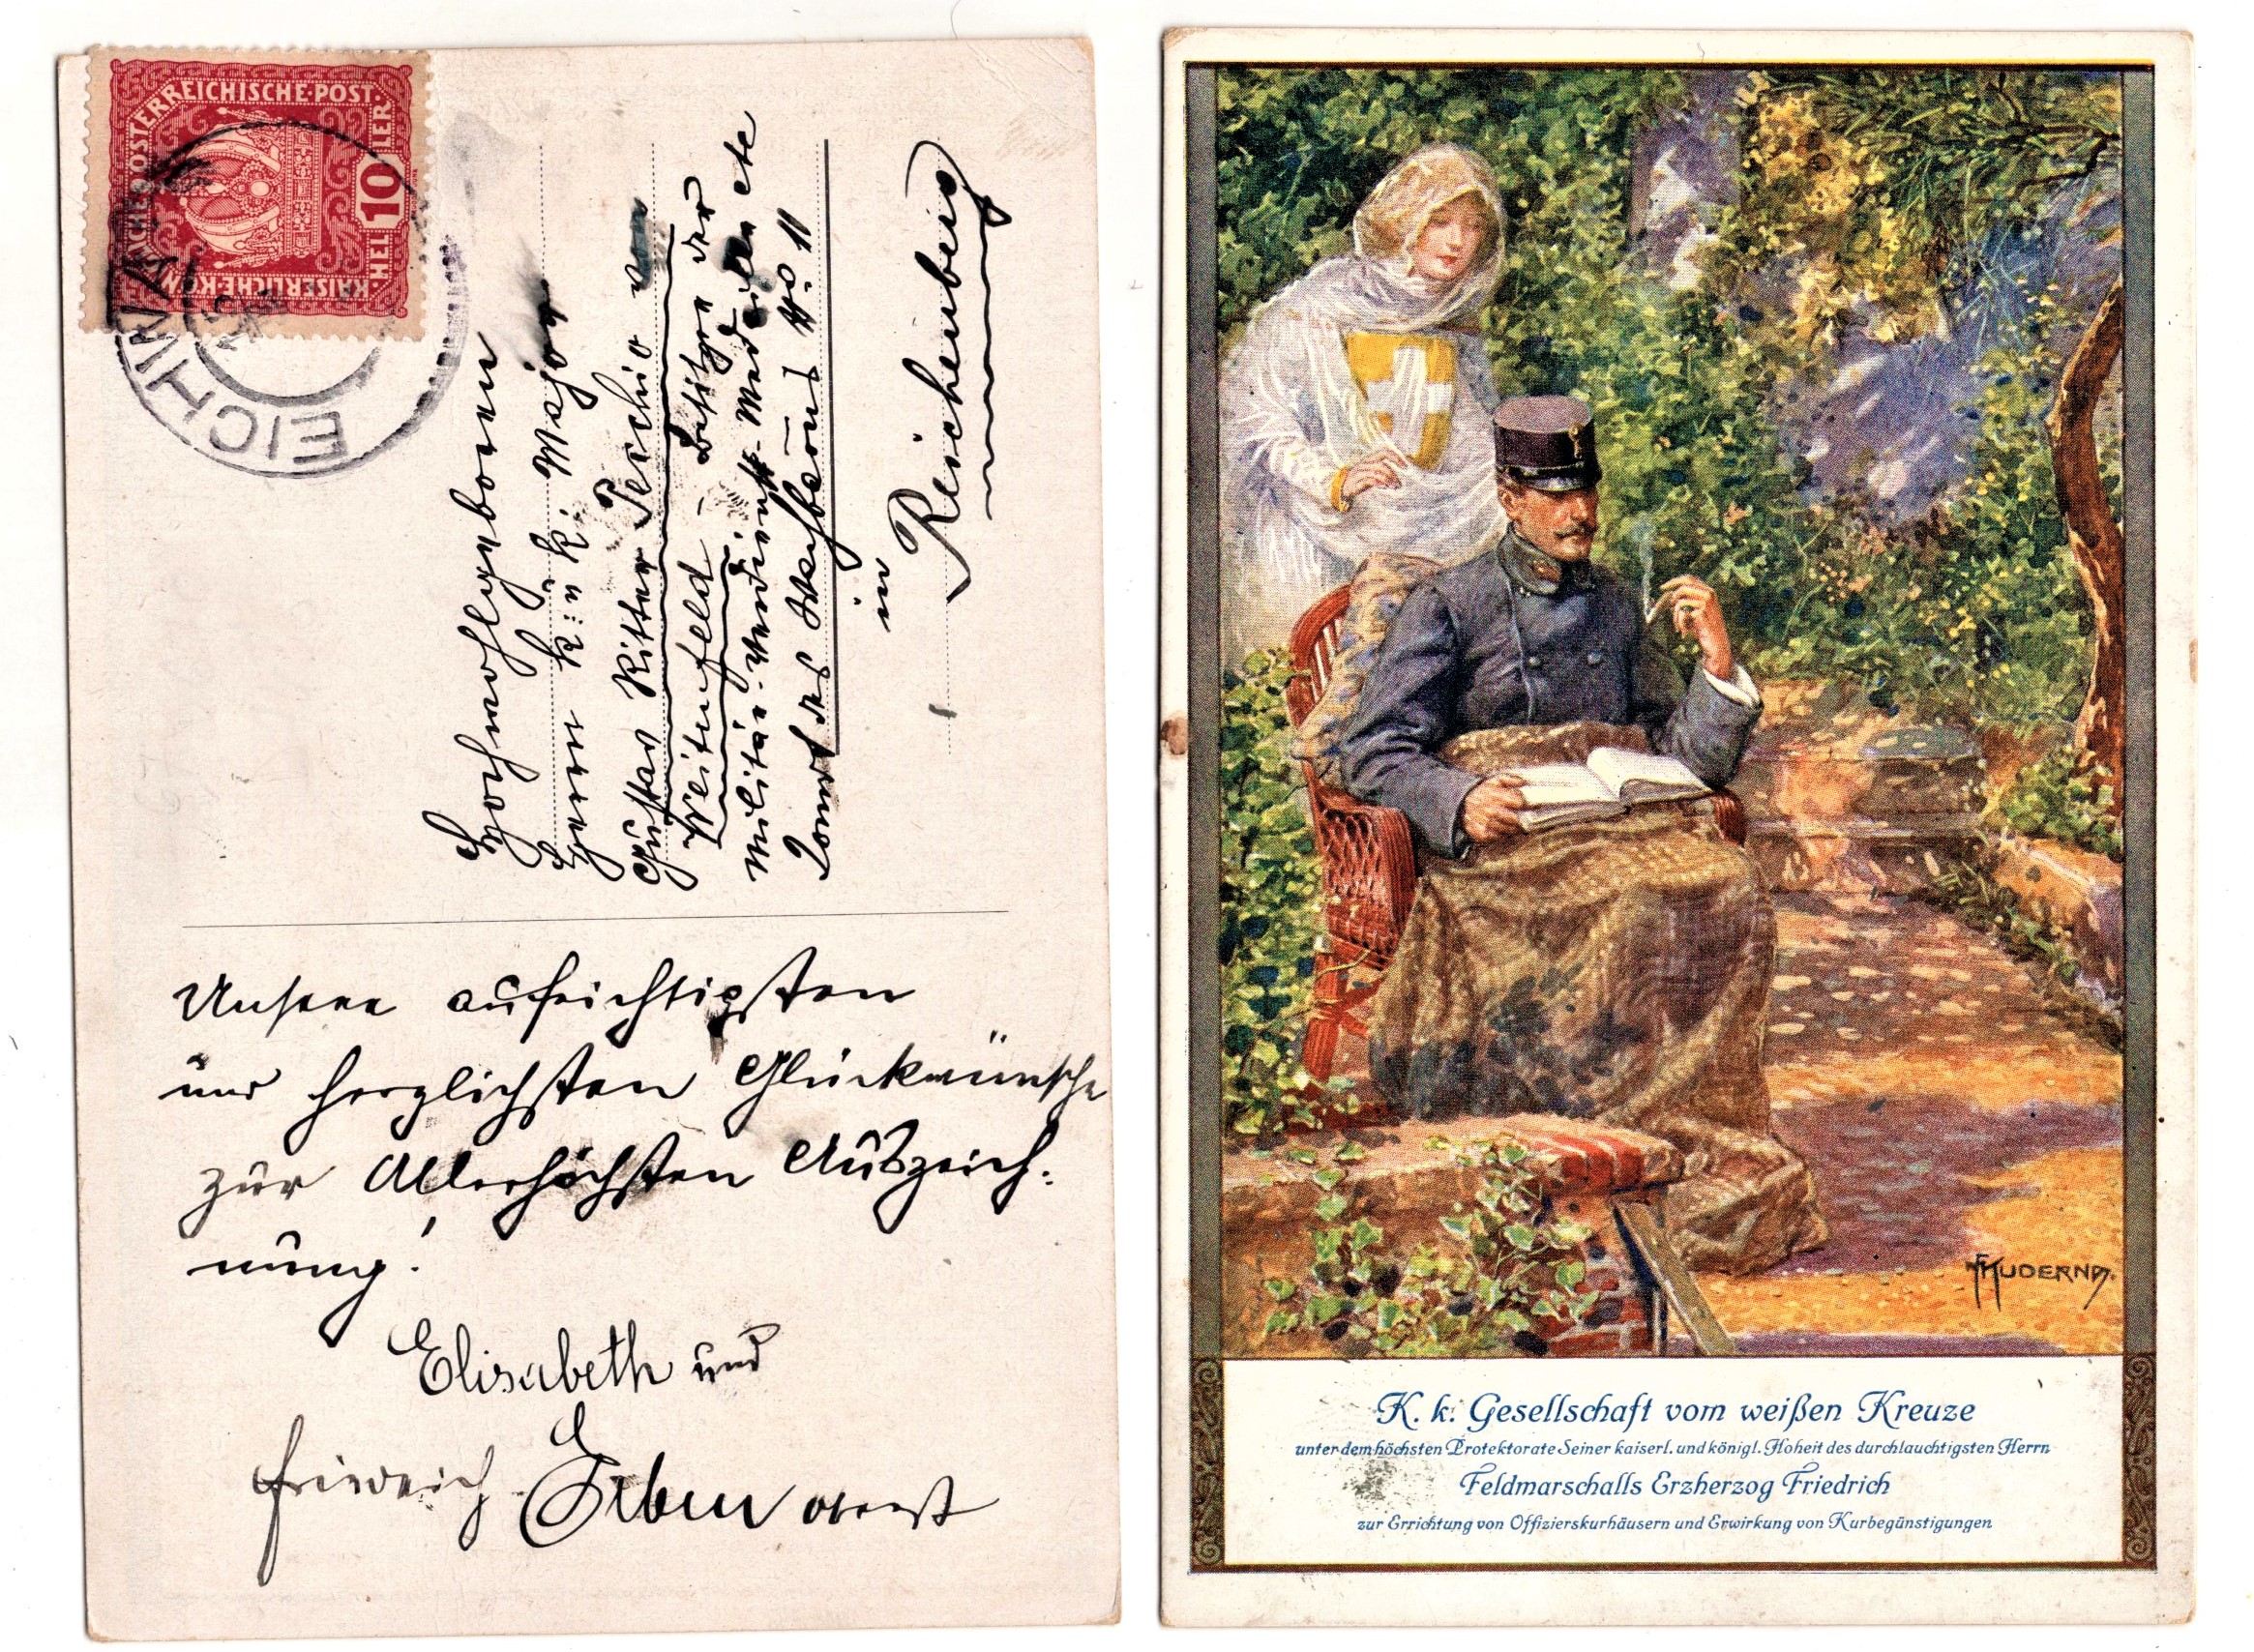 KAISERLICHE KÖNIGLICHE ÖSTERREICHISCHE POST.
10
HELLER
EICHWA
Hochwohlgeboren
Herrn k: u: k: Major
Gustav Ritter Perchio von
Weitenfeld - Besitzer der
Militär-Verdienst-Medaille etc
Komdt des No 11
in
Reichenberg
Unsere aufrichtigsten
und herzlichsten Glückwünsche
zur Allerhöchsten Auszeich:
nung!
Elisabeth und
Friedrich Oberst
F KUDERNA.
K. k. Gesellschaft vom weißen Kreuze
unter dem höchsten Protektorate Seiner kaiserl. und königl. Hoheit des durchlauchtigsten Herrn
Feldmarschalls Erzherzog Friedrich
zur Errichtung von Offizierskurhäusern und Erwirkung von Kurbegünstigungen